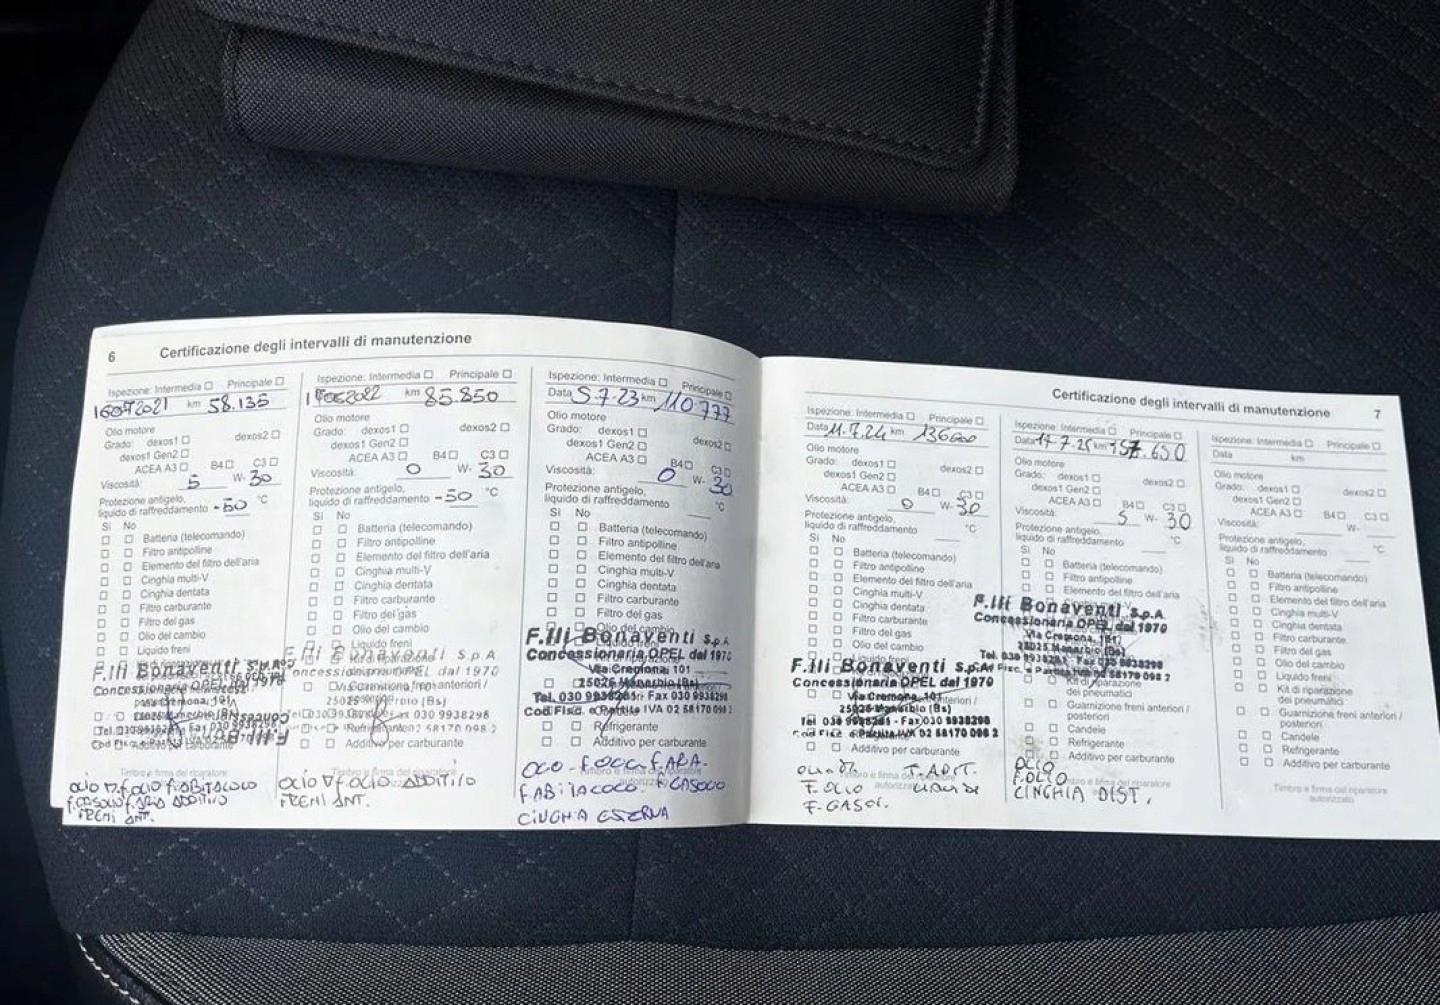 6 Certificazione degli intervalli di manutenzione
Ispezione: Intermedia Principale
16 07 2021 km 58.135
Olio motore
Grado: dexos1 dexos2
dexos1 Gen2
ACEA A3 B4 C3
Viscosità: 5 W- 30
Protezione antigelo,
liquido di raffreddamento -50 °C
Sì No
Batteria (telecomando)
Filtro antipolline
Elemento del filtro dell'aria
Cinghia multi-V
Cinghia dentata
Filtro carburante
Filtro del gas
Olio del cambio
Liquido freni
F.lli Bonaventi S.p.A
Concessionaria OPEL dal 1970
OLIO F.OLIO F.ABITACOLO
F.GASOLIO F.ARIA ADDITIVO
FRENI ANT.
Ispezione: Intermedia Principale
2022 km 85.850
Olio motore
Grado: dexos1 dexos2
dexos1 Gen2
ACEA A3 B4 C3
Viscosità: 0 W- 30
Protezione antigelo,
liquido di raffreddamento -50 °C
Sì No
Batteria (telecomando)
Filtro antipolline
Elemento del filtro dell'aria
Cinghia multi-V
Cinghia dentata
Filtro carburante
Filtro del gas
Olio del cambio
Liquido freni
F.lli Bonaventi S.p.A
Concessionaria OPEL dal 1970
25025 Manerbio (Bs)
Fax 030 9938298
Additivo per carburante
OLIO F.OLIO ADDITIVO
FRENI ANT.
Ispezione: Intermedia Principale
Data 5.7.23 km 110.777
Olio motore
Grado: dexos1 dexos2
dexos1 Gen2
ACEA A3 B4 C3
Viscosità: 0 W- 30
Protezione antigelo,
liquido di raffreddamento °C
Sì No
Batteria (telecomando)
Filtro antipolline
Elemento del filtro dell'aria
Cinghia multi-V
Cinghia dentata
Filtro carburante
Filtro del gas
Olio del cambio
F.lli Bonaventi S.p.A
Concessionaria OPEL dal 1970
Via Cremona, 101
25025 Manerbio (Bs)
Tel. 030 9938281 - Fax 030 9938298
Cod Fisc. e Partita IVA 02 58170 098 2
Refrigerante
Additivo per carburante
OLIO - F.OLIO - F.ARIA -
F.ABITACOLO - F.GASOLIO
CINGHIA ESTERNA
Certificazione degli intervalli di manutenzione 7
Ispezione: Intermedia Principale
Data 11.7.24 km 136000
Olio motore
Grado: dexos1 dexos2
dexos1 Gen2
ACEA A3 B4 C3
Viscosità: 0 W- 30
Protezione antigelo,
liquido di raffreddamento °C
Sì No
Batteria (telecomando)
Filtro antipolline
Elemento del filtro dell'aria
Cinghia multi-V
Cinghia dentata
Filtro carburante
Filtro del gas
Olio del cambio
F.lli Bonaventi S.p.A
Concessionaria OPEL dal 1970
Via Cremona, 101
25025 Manerbio (Bs)
Tel 030 9938281 - Fax 030 9938298
Cod Fisc e Partita IVA 02 58170 098 2
Additivo per carburante
F.OLIO
F.GASOL.
Ispezione: Intermedia Principale
Data 17.7.25 km 157.650
Olio motore
Grado: dexos1 dexos2
dexos1 Gen2
ACEA A3 B4 C3
Viscosità: 5 W- 30
Protezione antigelo,
liquido di raffreddamento °C
Sì No
Batteria (telecomando)
Filtro antipolline
Elemento del filtro dell'aria
F.lli Bonaventi S.p.A
Concessionaria OPEL dal 1970
Via Cremona, 101
25025 Manerbio (Bs)
Tel. 030 9938281 - Fax 030 9938298
Partita IVA 02 58170 098 2
Kit di riparazione
dei pneumatici
Guarnizione freni anteriori /
posteriori
Candele
Refrigerante
Additivo per carburante
OLIO
F.OLIO
CINGHIA DIST.
Ispezione: Intermedia Principale
Data km
Olio motore
Grado: dexos1 dexos2
dexos1 Gen2
ACEA A3 B4 C3
Viscosità: W-
Protezione antigelo,
liquido di raffreddamento °C
Sì No
Batteria (telecomando)
Filtro antipolline
Elemento del filtro dell'aria
Cinghia multi-V
Cinghia dentata
Filtro carburante
Filtro del gas
Olio del cambio
Liquido freni
Kit di riparazione
dei pneumatici
Guarnizione freni anteriori /
posteriori
Candele
Refrigerante
Additivo per carburante
Timbro e firma del riparatore
autorizzato